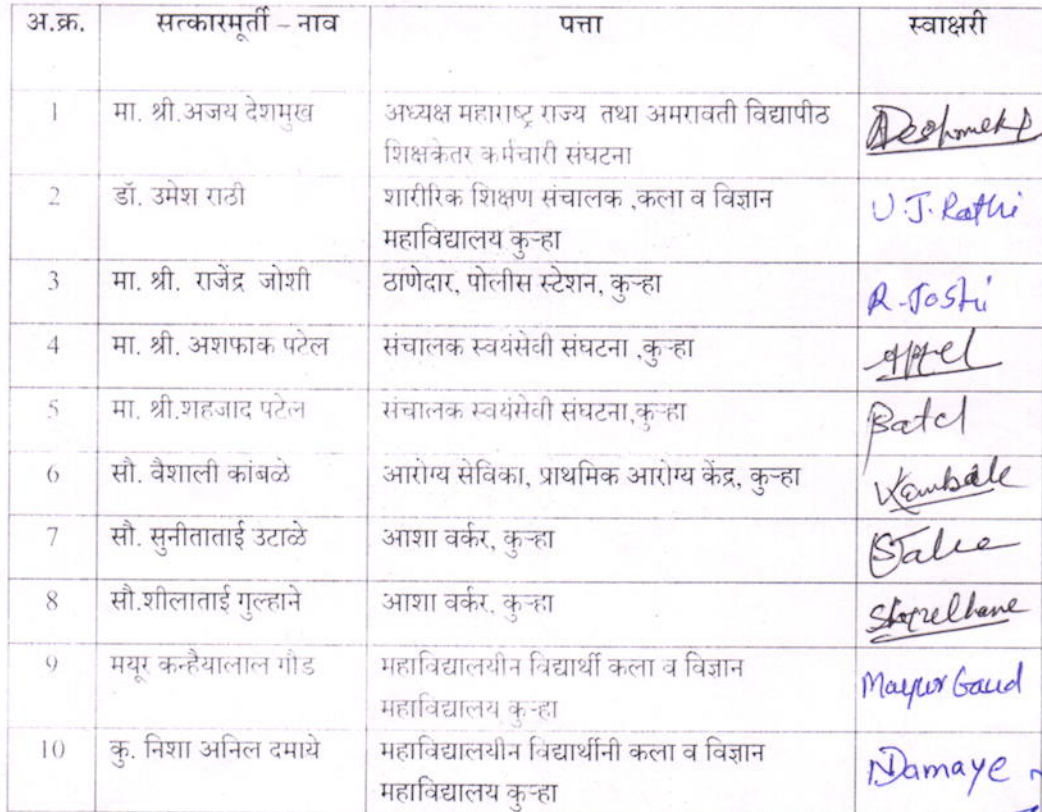 अ.क्र. सत्कारमूर्ती – नाव पत्ता स्वाक्षरी
1 मा. श्री.अजय देशमुख अध्यक्ष महाराष्ट्र राज्य तथा अमरावती विद्यापीठ Deshmukh
शिक्षकेतर कर्मचारी संघटना
2 डॉ. उमेश राठी शारीरिक शिक्षण संचालक ,कला व विज्ञान U.J. Rathi
महाविद्यालय कुऱ्हा
3 मा. श्री. राजेंद्र जोशी ठाणेदार, पोलीस स्टेशन, कुऱ्हा R. Joshi
4 मा. श्री. अशफाक पटेल संचालक स्वयंसेवी संघटना ,कुऱ्हा
5 मा. श्री.शहजाद पटेल संचालक स्वयंसेवी संघटना,कुऱ्हा Patel
6 सौ. वैशाली कांबळे आरोग्य सेविका, प्राथमिक आरोग्य केंद्र, कुऱ्हा VKambale
7 सौ. सुनीताताई उटाळे आशा वर्कर, कुऱ्हा
8 सौ.शीलाताई गुल्हाने आशा वर्कर, कुऱ्हा
9 मयूर कन्हैयालाल गौड महाविद्यालयीन विद्यार्थी कला व विज्ञान Mayur Gaud
महाविद्यालय कुऱ्हा
10 कु. निशा अनिल दमाये महाविद्यालयीन विद्यार्थीनी कला व विज्ञान NDamaye
महाविद्यालय कुऱ्हा